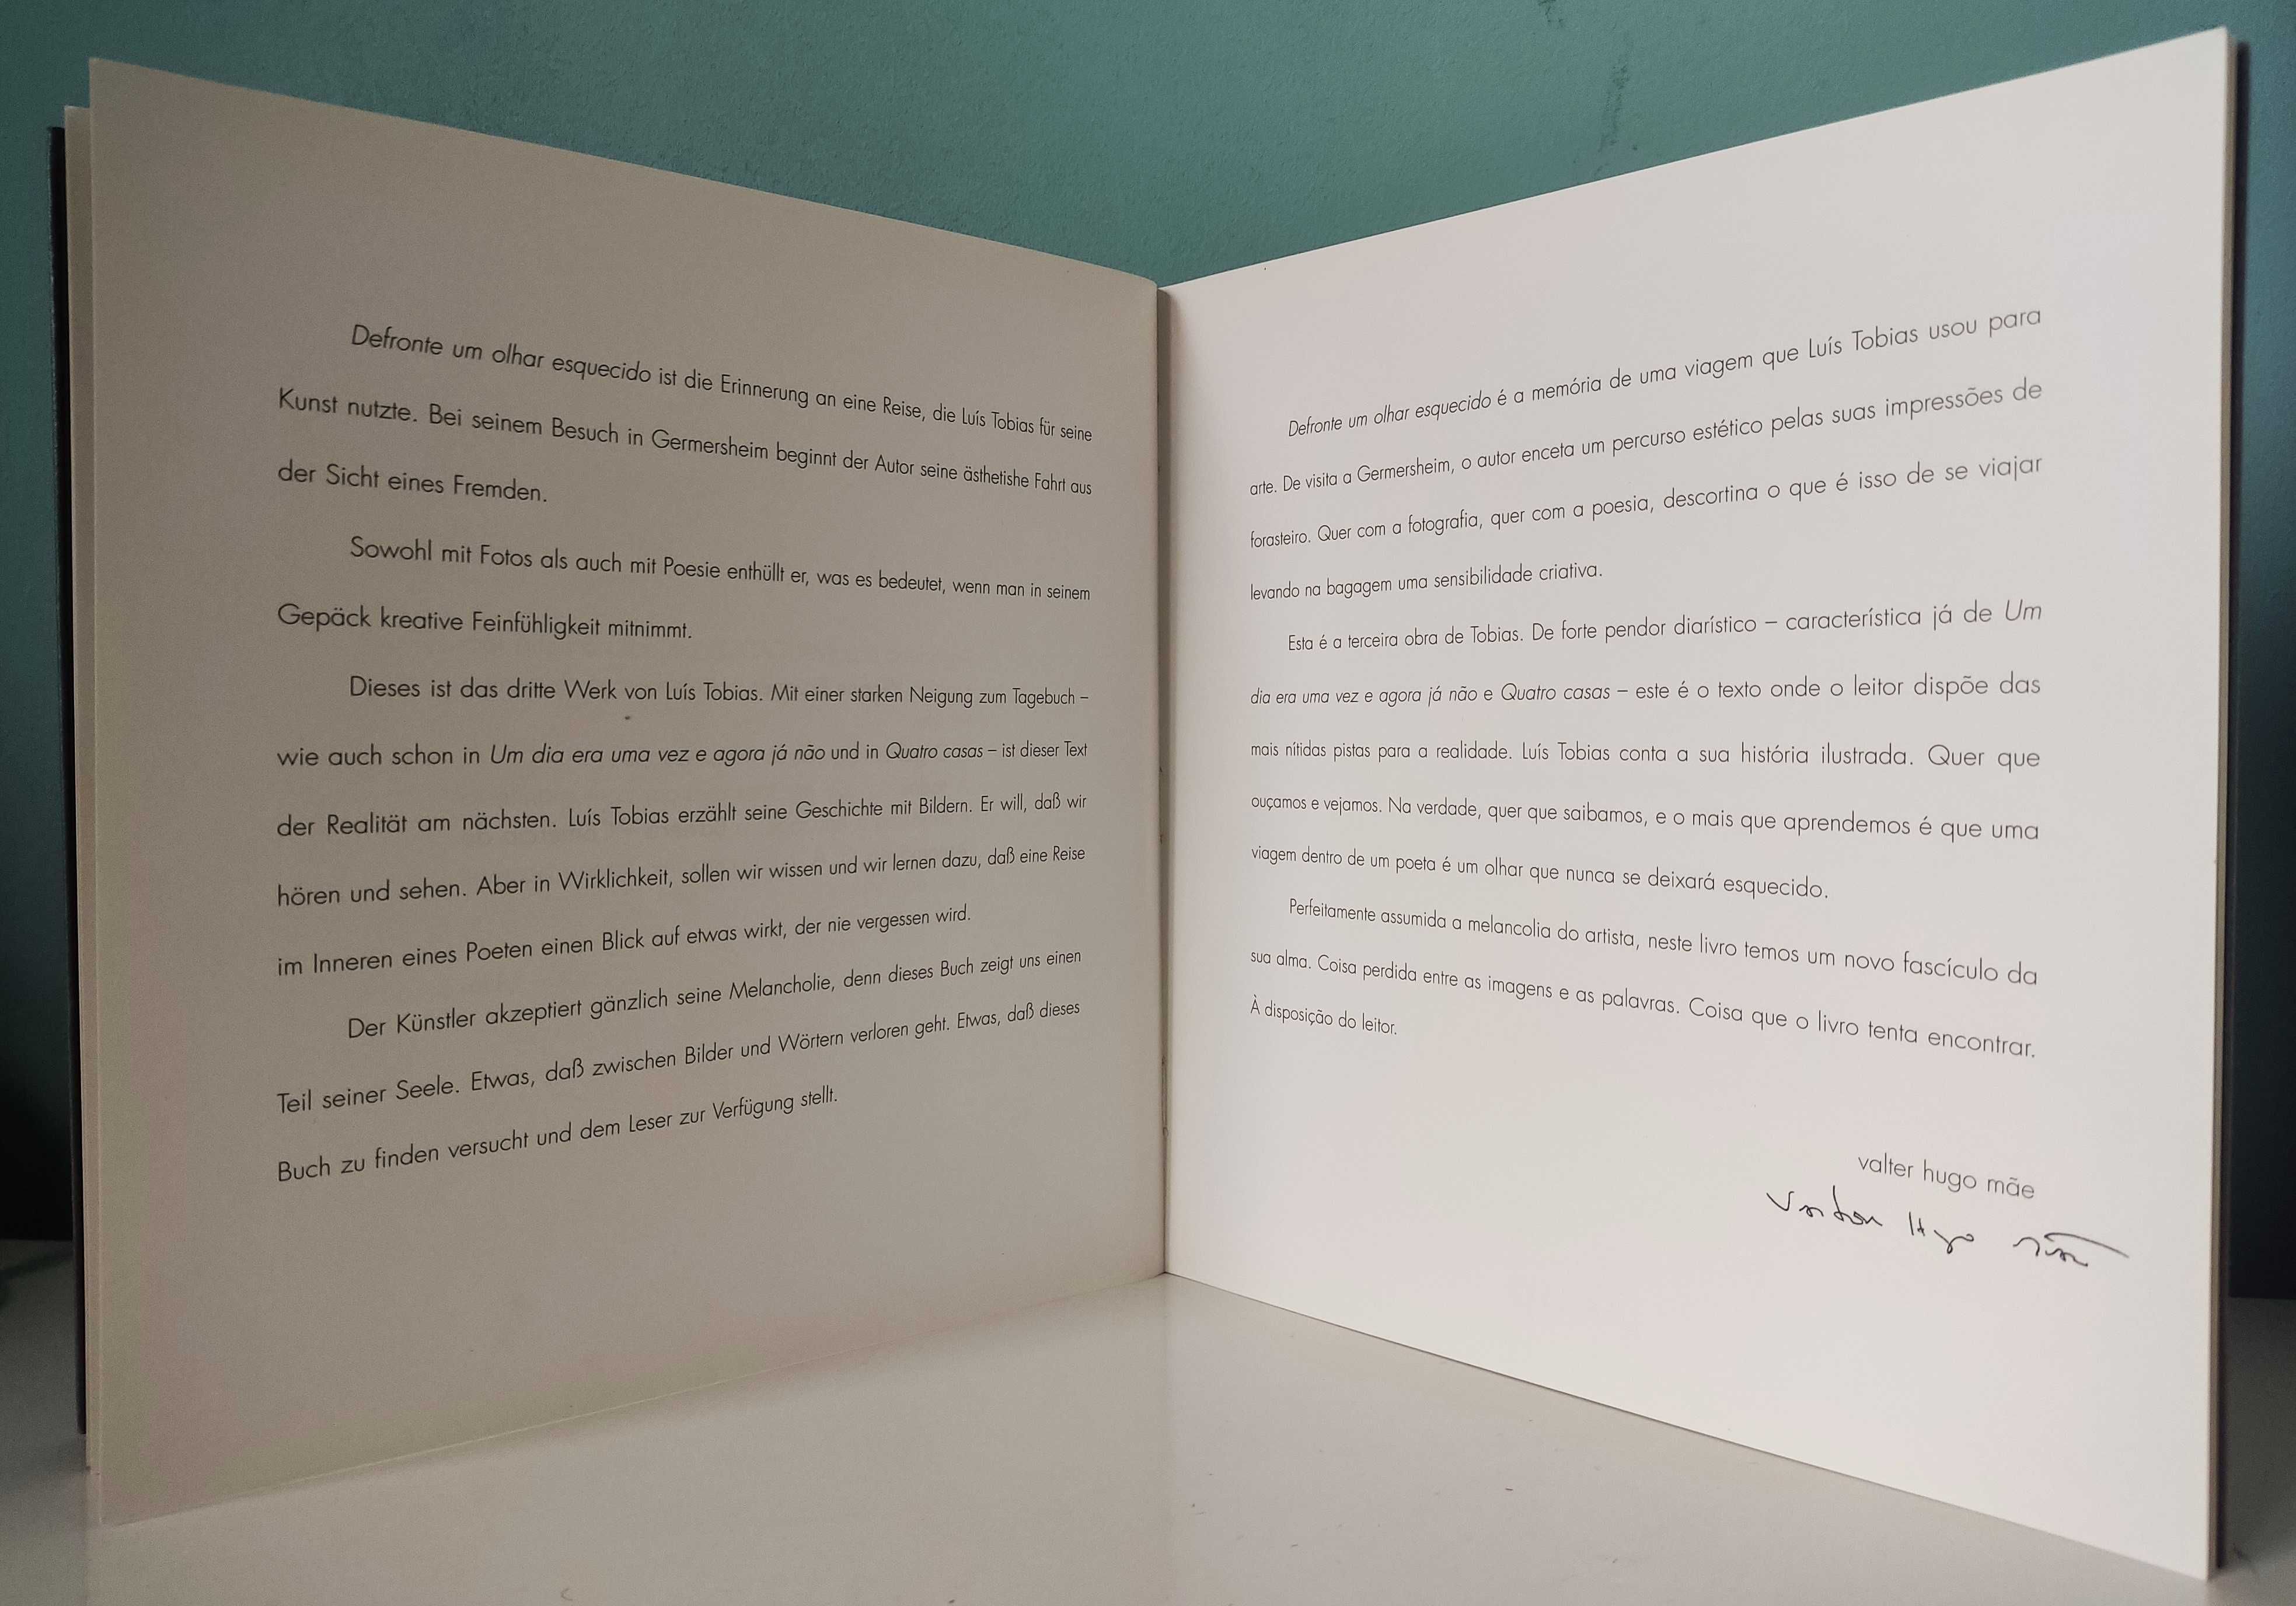 Defronte um olhar esquecido ist die Erinnerung an eine Reise, die Luís Tobias für seine
Kunst nutzte. Bei seinem Besuch in Germersheim beginnt der Autor seine ästhetishe Fahrt aus
der Sicht eines Fremden.
Sowohl mit Fotos als auch mit Poesie enthüllt er, was es bedeutet, wenn man in seinem
Gepäck kreative Feinfühligkeit mitnimmt.
Dieses ist das dritte Werk von Luís Tobias. Mit einer starken Neigung zum Tagebuch –
wie auch schon in Um dia era uma vez e agora já não und in Quatro casas – ist dieser Text
der Realität am nächsten. Luís Tobias erzählt seine Geschichte mit Bildern. Er will, daß wir
hören und sehen. Aber in Wirklichkeit, sollen wir wissen und wir lernen dazu, daß eine Reise
im Inneren eines Poeten einen Blick auf etwas wirkt, der nie vergessen wird.
Der Künstler akzeptiert gänzlich seine Melancholie, denn dieses Buch zeigt uns einen
Teil seiner Seele. Etwas, daß zwischen Bilder und Wörtern verloren geht. Etwas, daß dieses
Buch zu finden versucht und dem Leser zur Verfügung stellt.
Defronte um olhar esquecido é a memória de uma viagem que Luís Tobias usou para
arte. De visita a Germersheim, o autor enceta um percurso estético pelas suas impressões de
forasteiro. Quer com a fotografia, quer com a poesia, descortina o que é isso de se viajar
levando na bagagem uma sensibilidade criativa.
Esta é a terceira obra de Tobias. De forte pendor diarístico – característica já de Um
dia era uma vez e agora já não e Quatro casas – este é o texto onde o leitor dispõe das
mais nítidas pistas para a realidade. Luís Tobias conta a sua história ilustrada. Quer que
ouçamos e vejamos. Na verdade, quer que saibamos, e o mais que aprendemos é que uma
viagem dentro de um poeta é um olhar que nunca se deixará esquecido.
Perfeitamente assumida a melancolia do artista, neste livro temos um novo fascículo da
sua alma. Coisa perdida entre as imagens e as palavras. Coisa que o livro tenta encontrar.
À disposição do leitor.
valter hugo mãe
valter hugo mãe